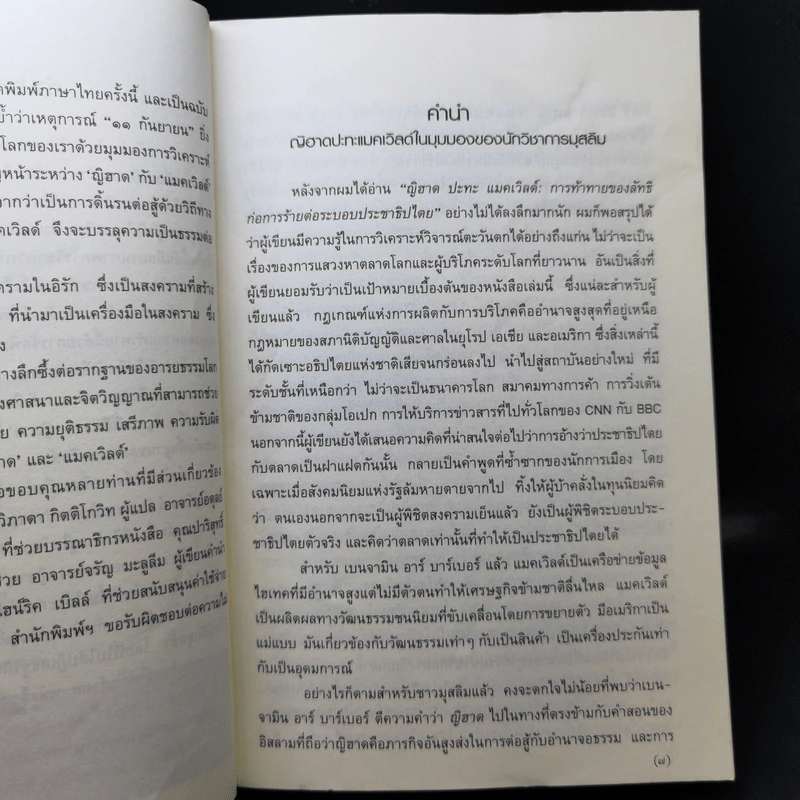 พิมพ์ภาษาไทยครั้งนี้ และเป็นฉบับ
ย้ำว่าเหตุการณ์ “๑๑ กันยายน” ยิ่ง
โลกของเราด้วยมุมมองการวิเคราะห์
หน้าระหว่าง ‘ญิฮาด’ กับ ‘แมคเวิลด์’
ากว่าเป็นการดิ้นรนต่อสู้ด้วยวิถีทาง
คเวิลด์ จึงจะบรรลุความเป็นธรรมต่อ
งครามในอิรัก ซึ่งเป็นสงครามที่สร้าง
ที่นำมาเป็นเครื่องมือในสงคราม ซึ่ง
ง
างลึกซึ้งต่อรากฐานของอารยธรรมโลก
งศาสนาและจิตวิญญาณที่สามารถช่วย
ย ความยุติธรรม เสรีภาพ ความรับผิด
าด’ และ ‘แมคเวิลด์’
อขอบคุณหลายท่านที่มีส่วนเกี่ยวข้อง
วิภาดา กิตติโกวิท ผู้แปล อาจารย์อดุลย์
ที่ช่วยบรรณาธิกรหนังสือ คุณปาริสุทธิ์
ช่วย อาจารย์จรัญ มะลูลีม ผู้เขียนคำนำ
ไฮน์ริค เบิลล์ ที่ช่วยสนับสนุนค่าใช้จ่าย
สำนักพิมพ์ฯ ขอรับผิดชอบต่อความไม่
คำนำ
ญิฮาดปะทะแมคเวิลด์ในมุมมองของนักวิชาการมุสลิม
หลังจากผมได้อ่าน “ญิฮาด ปะทะ แมคเวิลด์: การท้าทายของลัทธิ
ก่อการร้ายต่อระบอบประชาธิปไตย” อย่างไม่ได้ลงลึกมากนัก ผมก็พอสรุปได้
ว่าผู้เขียนมีความรู้ในการวิเคราะห์วิจารณ์ตะวันตกได้อย่างถึงแก่น ไม่ว่าจะเป็น
เรื่องของการแสวงหาตลาดโลกและผู้บริโภคระดับโลกที่ยาวนาน อันเป็นสิ่งที่
ผู้เขียนยอมรับว่าเป็นเป้าหมายเบื้องต้นของหนังสือเล่มนี้ ซึ่งแน่ละสำหรับผู้
เขียนแล้ว กฎเกณฑ์แห่งการผลิตกับการบริโภคคืออำนาจสูงสุดที่อยู่เหนือ
กฎหมายของสภานิติบัญญัติและศาลในยุโรป เอเชีย และอเมริกา ซึ่งสิ่งเหล่านี้
ได้กัดเซาะอธิปไตยแห่งชาติเสียจนกร่อนลงไป นำไปสู่สถาบันอย่างใหม่ ที่มี
ระดับชั้นที่เหนือกว่า ไม่ว่าจะเป็นธนาคารโลก สมาคมทางการค้า การวิ่งเต้น
ข้ามชาติของกลุ่มโอเปก การให้บริการข่าวสารที่ไปทั่วโลกของ CNN กับ BBC
นอกจากนี้ผู้เขียนยังได้เสนอความคิดที่น่าสนใจต่อไปว่าการอ้างว่าประชาธิปไตย
กับตลาดเป็นฝาแฝดกันนั้น กลายเป็นคำพูดที่ซ้ำซากของนักการเมือง โดย
เฉพาะเมื่อสังคมนิยมแห่งรัฐล้มหายตายจากไป ทิ้งให้ผู้บ้าคลั่งในทุนนิยมคิด
ว่า ตนเองนอกจากจะเป็นผู้พิชิตสงครามเย็นแล้ว ยังเป็นผู้พิชิตระบอบประ-
ชาธิปไตยตัวจริง และคิดว่าตลาดเท่านั้นที่ทำให้เป็นประชาธิปไตยได้
สำหรับ เบนจามิน อาร์ บาร์เบอร์ แล้ว แมคเวิลด์เป็นเครือข่ายข้อมูล
ไฮเทคที่มีอำนาจสูงแต่ไม่มีตัวตนทำให้เศรษฐกิจข้ามชาติลื่นไหล แมคเวิลด์
เป็นผลิตผลทางวัฒนธรรมชนนิยมที่ขับเคลื่อนโดยการขยายตัว มีอเมริกาเป็น
แม่แบบ มันเกี่ยวข้องกับวัฒนธรรมเท่าๆ กับเป็นสินค้า เป็นเครื่องประกันเท่า
กับเป็นอุดมการณ์
อย่างไรก็ตามสำหรับชาวมุสลิมแล้ว คงจะตกใจไม่น้อยที่พบว่าเบน-
จามิน อาร์ บาร์เบอร์ ตีความคำว่า ญิฮาด ไปในทางที่ตรงข้ามกับคำสอนของ
อิสลามที่ถือว่าญิฮาดคือภารกิจอันสูงส่งในการต่อสู้กับอำนาจอธรรม และการ
(๗)